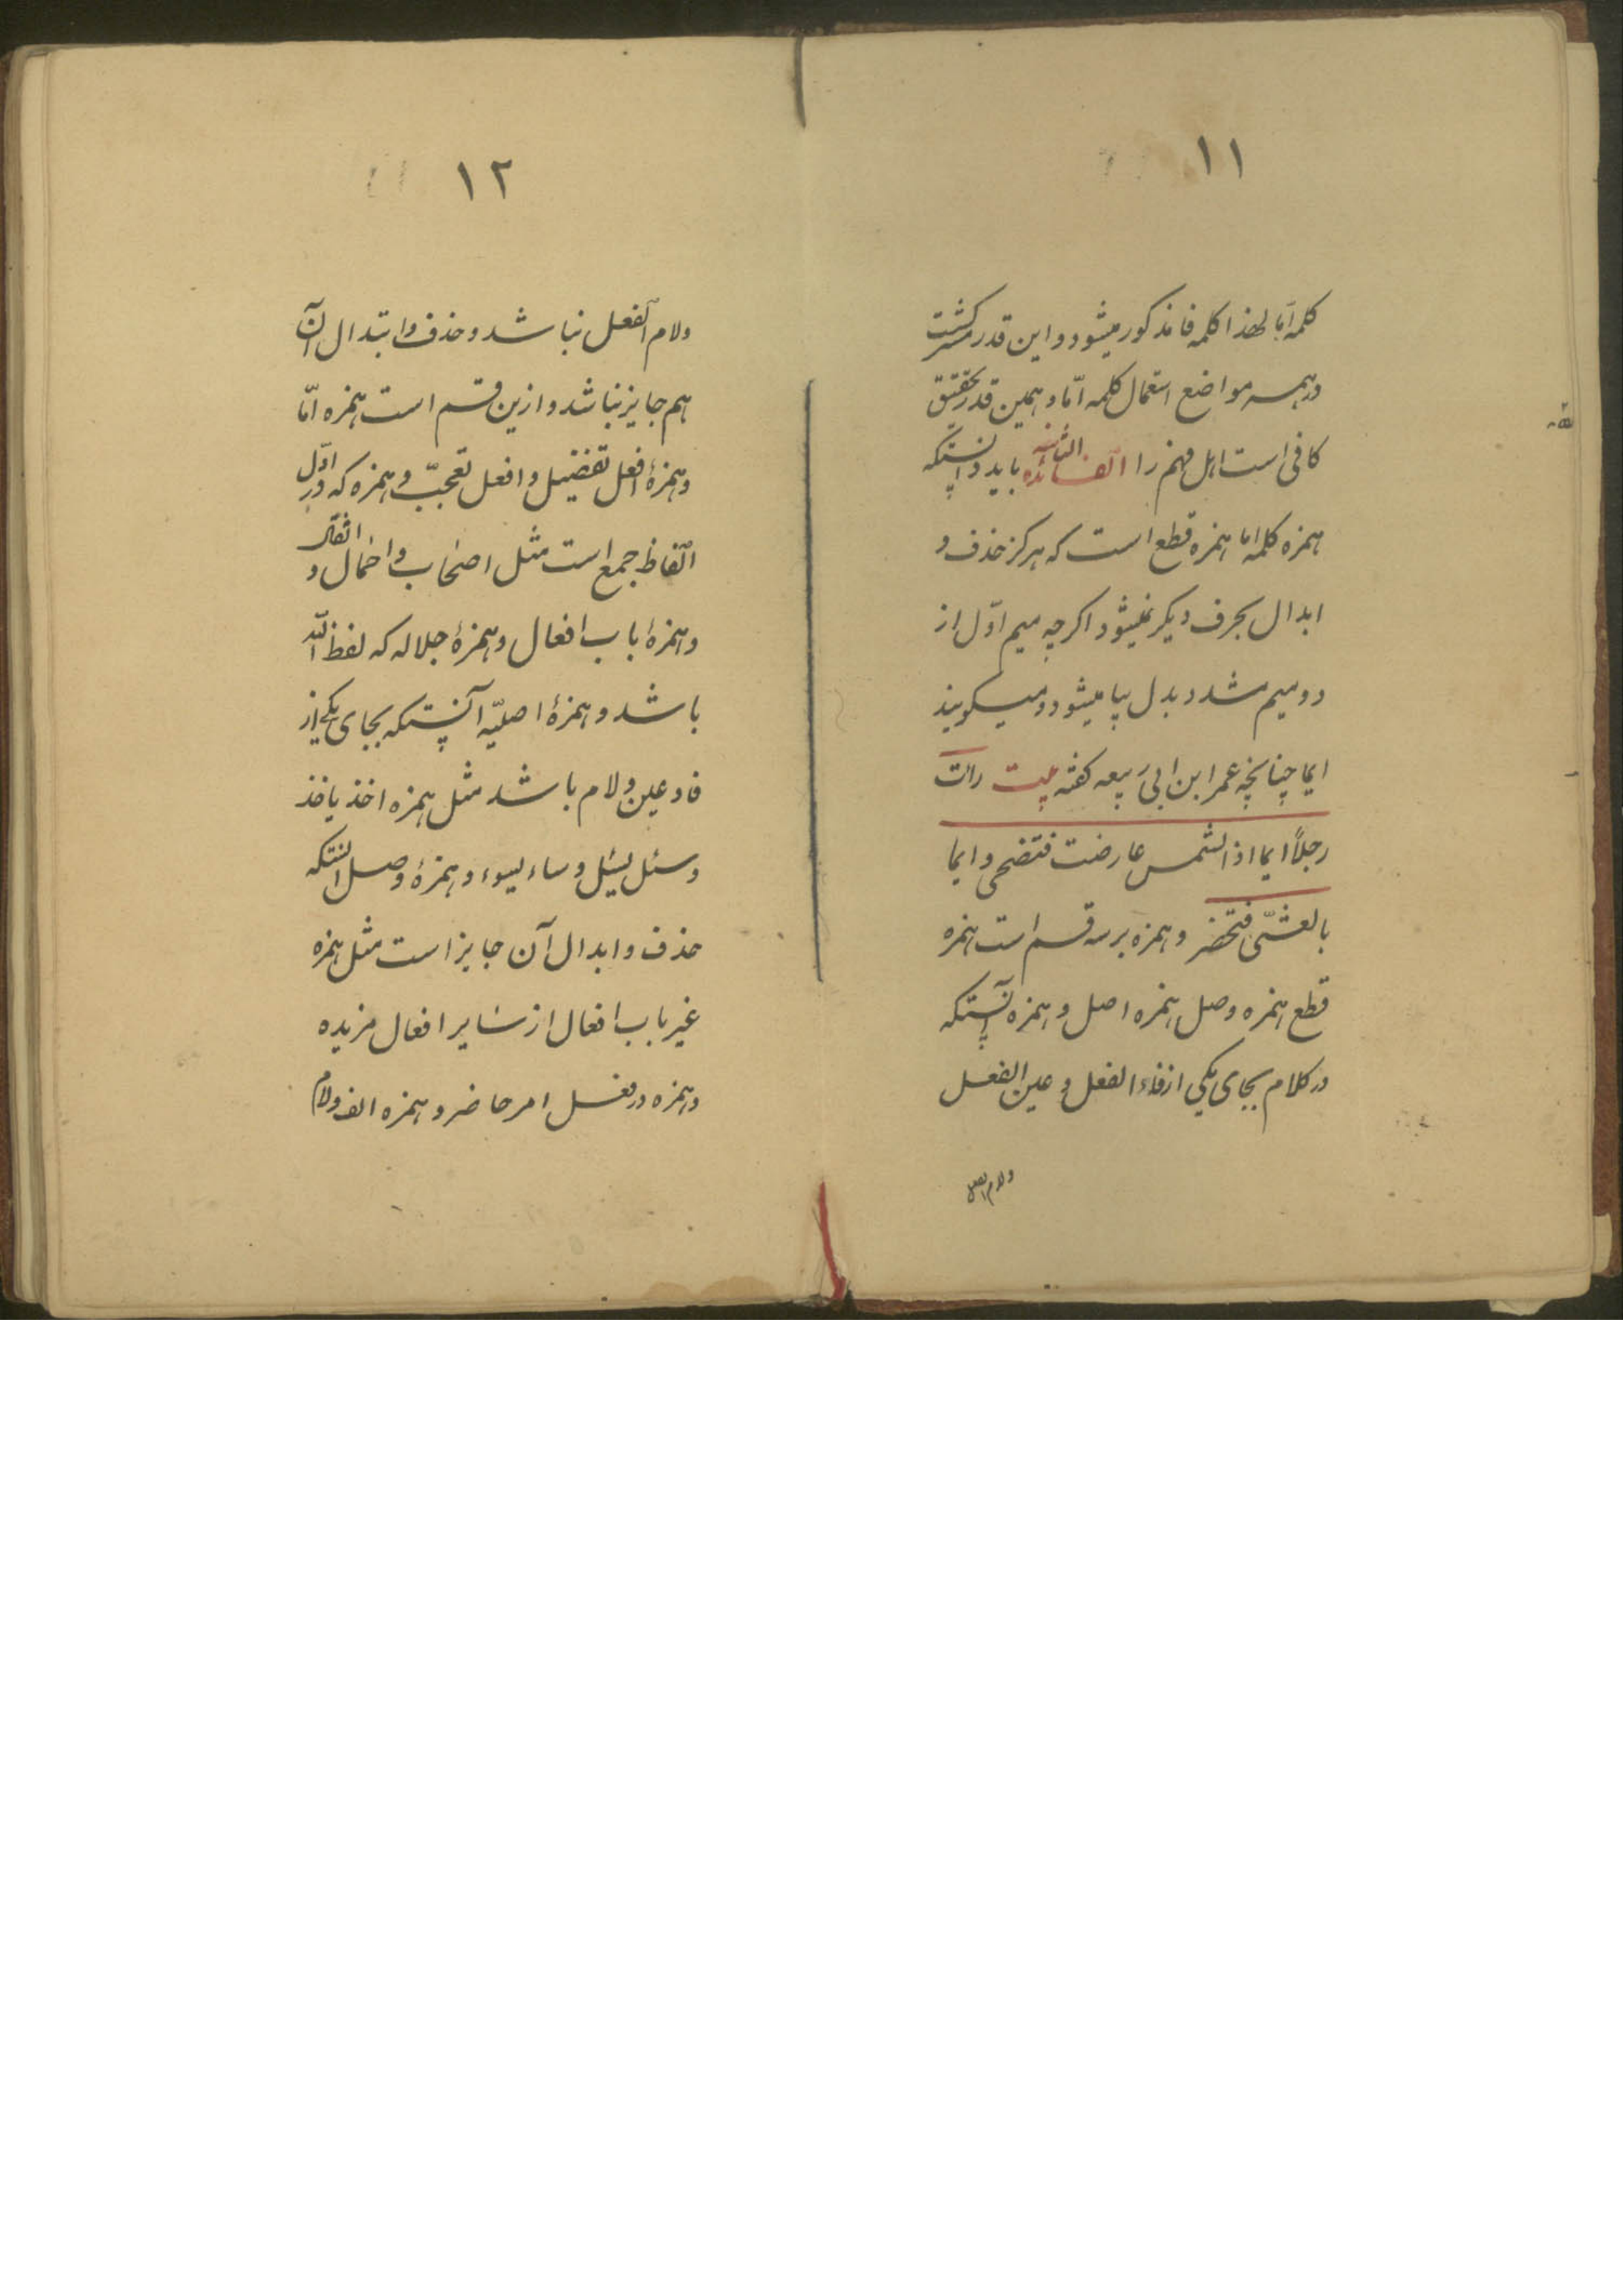 ۱۱
کلمه امّا لهذا کلمه فا مذکور میشود و این قدر
در همه مواضع استعمال کلمه امّا و همین قدر تحقیق
کافی است اهل فهم را الفائده الثانیه باید دانستکه
همزه کلمه اما همزه قطع است که هرکز حذف و
ابدال بحرف دیکر نمیشود اکرچه میم اوّل از
دو میم مشدد بدل بیا میشود و میکویند
ایما چنانچه عمر ابن ابی ربیعه کفته بیت رات
رجلاً ایما اذا الشمس عارضت فتضحی و ایما
بالعشّی فتحضر و همزه بر سه قسم است همزه
قطع همزه وصل همزه اصل و همزه آنستکه
در کلام بجای یکی از فاء الفعل و عین الفعل
ولام الفعل
۱۲
ولام الفعل نباشد و حذف و ابتدال آن
هم جایز نباشد و ازین قسم است همزه امّا
و همزهٔ افعل تفضیل و افعل تعجبّ و همزه که در اوّل
الفاظ جمع است مثل اصحاب و احمال و اثقال
و همزهٔ باب افعال و همزهٔ جلاله که لفظ الله
باشد و همزهٔ اصلیّه آنستکه بجای یکی از
فا و عین و لام باشد مثل همزه اخذ یاخذ
و سئل یسئل و ساء یسوء و همزهٔ وصل انستکه
حذف و ابدال آن جایز است مثل همزه
غیر باب افعال از سایر افعال مزیده
و همزه در فعل امر حاضر و همزه الف ولام